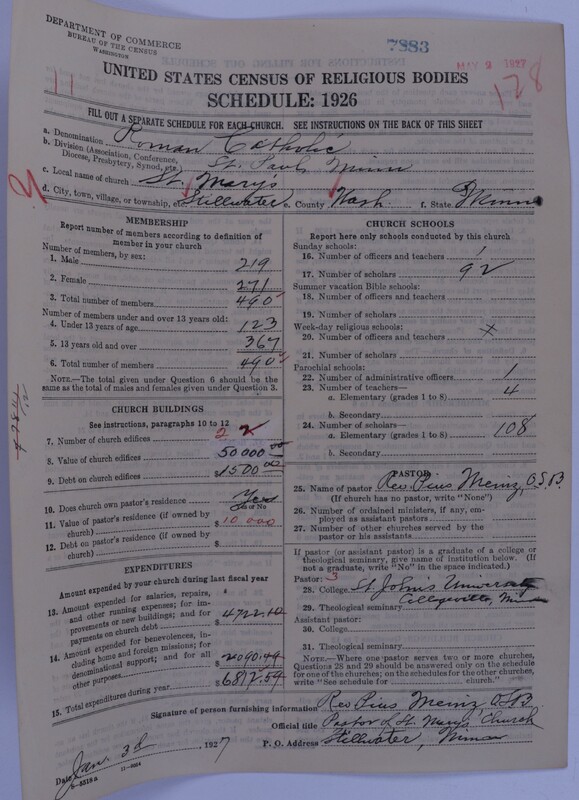 DEPARTMENT OF COMMERCE
BUREAU OF THE CENSUS
WASHINGTON
7883
MAY 2 1927
128
11
UNITED STATES CENSUS OF RELIGIOUS BODIES
SCHEDULE: 1926
FILL OUT A SEPARATE SCHEDULE FOR EACH CHURCH. SEE INSTRUCTIONS ON THE BACK OF THIS SHEET
a. Denomination Roman Catholic
b. Division (Association, Conference, Diocese, Presbytery, Synod, etc.) St. Paul, Minn
c. Local name of church St. Mary's
d. City, town, village, or township, etc. Stillwater e. County Wash. f. State Minn
MEMBERSHIP
Report number of members according to definition of
member in your church
Number of members, by sex:
1. Male 219
2. Female 271
3. Total number of members 490
Number of members under and over 13 years old:
4. Under 13 years of age 123
5. 13 years old and over 367
6. Total number of members 490
NOTE.—The total given under Question 6 should be the
same as the total of males and females given under Question 3.
CHURCH BUILDINGS
See instructions, paragraphs 10 to 12
7. Number of church edifices 2
8. Value of church edifices $50000.00
9. Debt on church edifices $1500.00
10. Does church own pastor's residence Yes
Yes or No
11. Value of pastor's residence (if owned by
church) $10.000
12. Debt on pastor's residence (if owned by
church) $
EXPENDITURES
Amount expended by church during last fiscal year
13. Amount expended for salaries, repairs,
and other running expenses; for im-
provements or new buildings; and for
payments on church debt $4722.10
14. Amount expended for benevolences, in-
cluding home and foreign missions; for
denominational support; and for all
other purposes $2090.49
15. Total expenditures during year $6812.59
CHURCH SCHOOLS
Report here only schools conducted by this church
Sunday schools:
16. Number of officers and teachers 1
17. Number of scholars 92
Summer vacation Bible schools:
18. Number of officers and teachers
19. Number of scholars
Week-day religious schools: x
20. Number of officers and teachers
21. Number of scholars
Parochial schools:
22. Number of administrative officers 1
23. Number of teachers—
a. Elementary (grades 1 to 8) 4
b. Secondary
24. Number of scholars—
a. Elementary (grades 1 to 8) 108
b. Secondary
PASTOR
25. Name of pastor Rev Pius Meinz, O.S.B.
(If church has no pastor, write "None")
26. Number of ordained ministers, if any, em-
ployed as assistant pastors
27. Number of other churches served by the
pastor or his assistants
If pastor (or assistant pastor) is a graduate of a college or
theological seminary, give name of institution below. (If
not a graduate, write "No" in the space indicated.)
Pastor: 3
28. College St. John's University
29. Theological seminary Collegeville, Minn
Assistant pastor:
30. College
31. Theological seminary
NOTE.—Where one pastor serves two or more churches,
Questions 28 and 29 should be answered only on the schedule
for one of the churches; on the schedules for the other churches,
write "See schedule for church."
Signature of person furnishing information Rev Pius Meinz O.S.B.
Official title Pastor of St. Mary's Church
Date Jan. 3d, 1927 P. O. Address Stillwater, Minn
8-5518a 11—9264